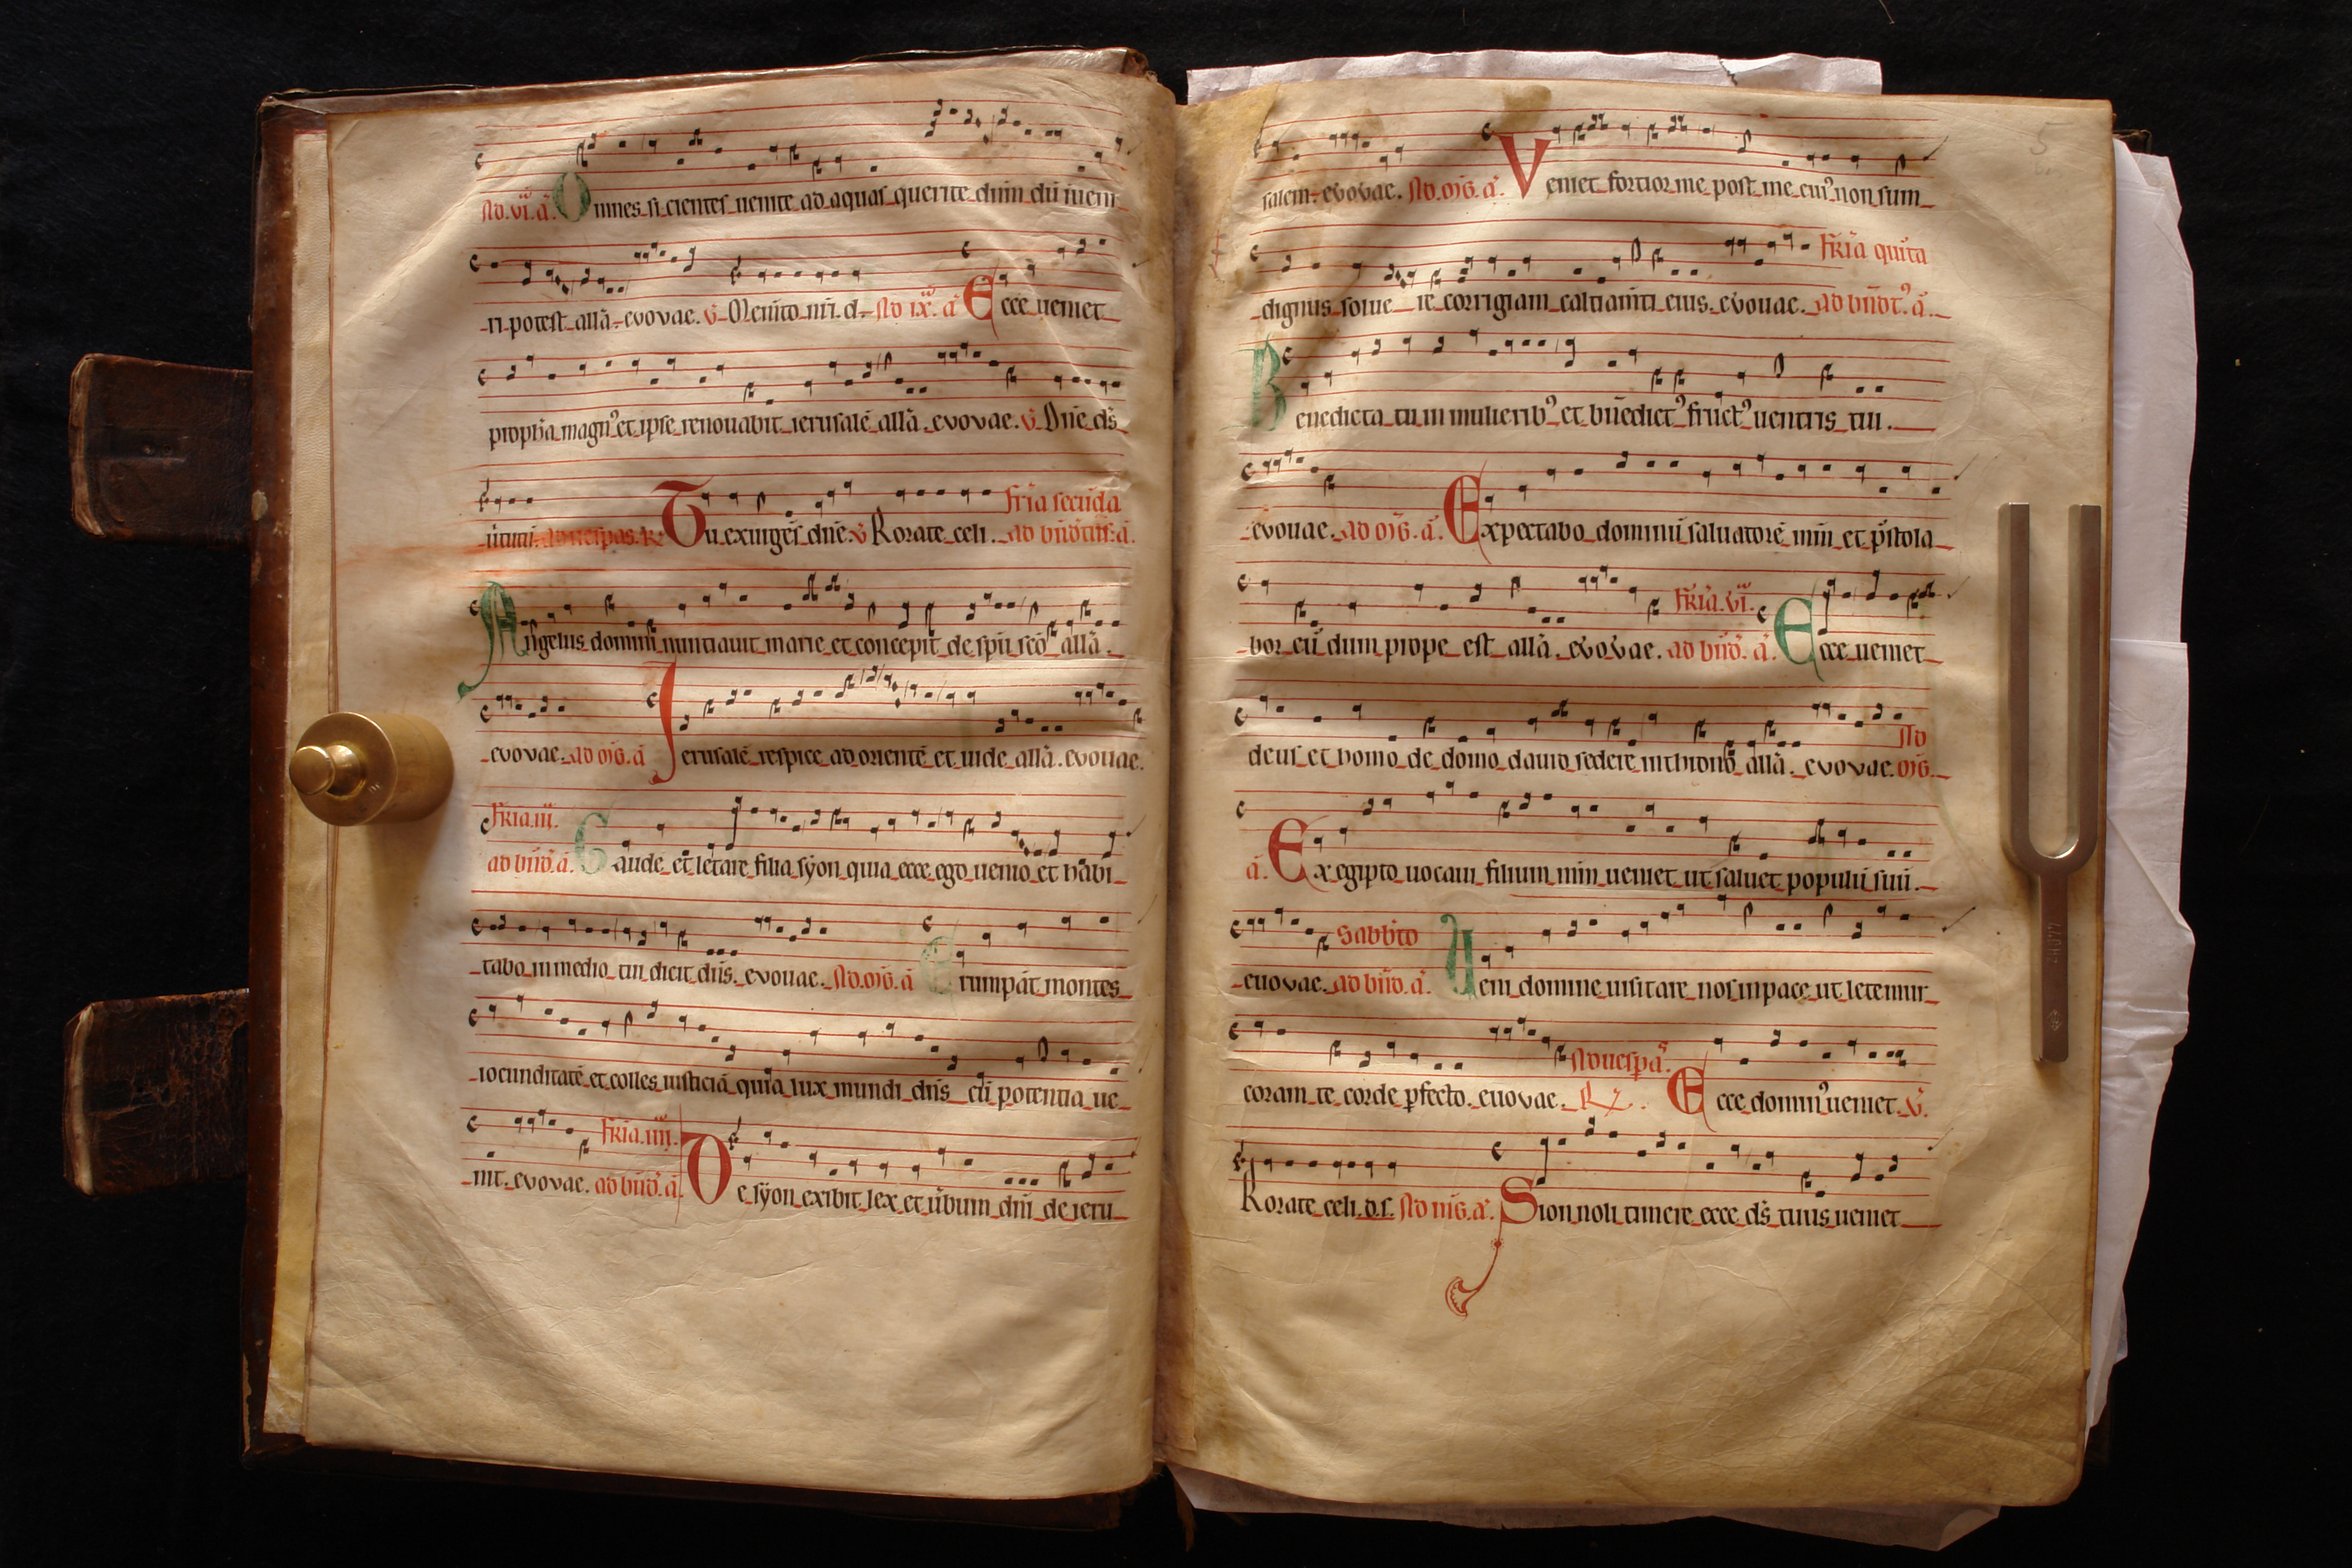 Ad. vi. a. Omnes si cientes uenite ad aquas querite dnm dū īueni
ri potest allā. evovae. v. Memto nr̄i. d. Ad ix. a Ecce ueniet
propħa magn⁹ et ipse renouabit ierusalē allā. evovae. v. Dn̄e ds̄
ūtutū. ad uesꝑas. R. Tu exurgēs dn̄e. v Rorate celi. fr̄ia secūda
ad bn̄dctus. a.
Angelus domini nuntiauit marie et concepit de sp̄u sc̄o allā.
evovae. ad mg̃. a Ierusalē respice ad orientē et uide allā. evouae.
Fr̄ia. iii.
ad bn̄d. a. Gaude et letare filia syon quia ecce ego uenio et hābi
tabo in medio tui dicit dn̄s. evouae. Ad. mg̃. a Erumpāt montes
iocunditatē et colles iusticiā quia lux mundi dn̄s cū potentia ue
nit. evovae. Fr̄ia. iiii.
ad bn̄d. a. De syon exibit lex et ūbum dn̄i de ieru
5
salem. evovae. Ad. mg̃. a. Veniet fortior me post me cui⁹ non sum
dignus solue re corrigiam caltiam̄ti eius. evouae. fr̄ia quīta
ad bn̄dt⁹. a.
Benedicta tu in mulierib⁹ et bn̄edict⁹ fruct⁹ uentris tui.
evouae. ad mg̃. a. Expectabo dominū saluatorē mm̄ et p̄stola
bor eū dum prope est allā. evovae. Fr̄ia. vi.
ad bn̄d. a. Ecce ueniet
deus et homo de domo dauid sedere in throno allā. evovae. Ad
mg̃.
a. Ex egipto uocaui filium mm̄ ueniet ut saluet populū suū.
euovae. Sabb̄to
ad bn̄d. a. Veni domine uisitare nos in pace ut letemur
coram te corde ꝑfecto. euovae. Ad uesꝑas
R. Ecce domin⁹ ueniet. v.
Rorate celi. d.s. Ad mg̃. a. Sion noli timere ecce ds̄ tuus ueniet